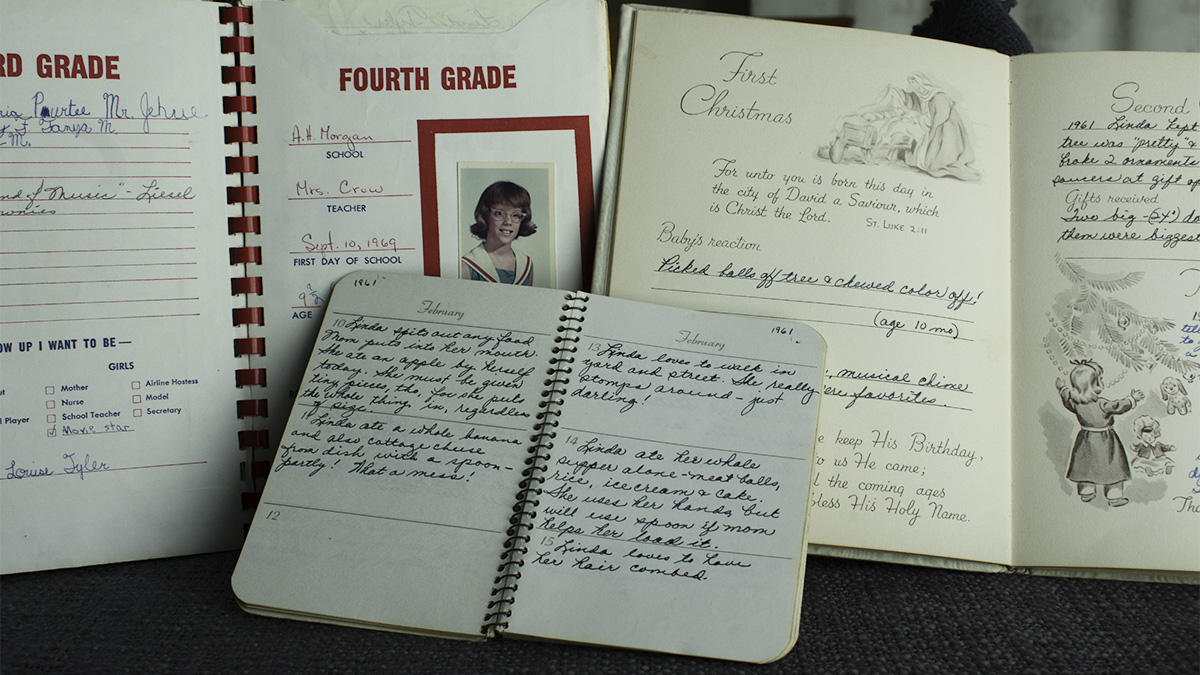 RD GRADE
Pourtee Mr. Jehrie
Tanya M.
M.
nd of Music" - Liesel
ownies
OW UP I WANT TO BE—
GIRLS
Mother
Nurse
School Teacher
Movie star
Airline Hostess
Model
Secretary
l Player
Louise Tyler
FOURTH GRADE
A.H. Morgan
SCHOOL
Mrs. Crow
TEACHER
Sept. 10, 1969
FIRST DAY OF SCHOOL
9
AGE
1961
February
10 Linda spits out any food
Mom puts into her mouth.
She ate an apple by herself
today. She must be given
ting pieces, tho, for she puts
the whole thing in, regardless
of size.
11 Linda ate a whole banana
and also cottage cheese
from dish with a spoon -
partly! What a mess!
12
1961
February
13 Linda loves to walk in
yard and street. She really
stomps around - just
darling!
14 Linda ate her whole
supper alone - meat balls,
rice, ice cream & cake.
She uses her hands but
will use spoon if mom
helps her load it.
15 Linda loves to have
her hair combed.
First
Christmas
For unto you is born this day in
the city of David a Saviour, which
is Christ the Lord.
ST. LUKE 2:11
Baby's reaction
Picked balls off tree & chewed color off!
(age 10 mo)
, musical chime
ere favorites.
e keep His Birthday,
to us He came;
l the coming ages
bless His Holy Name.
Second
1961 Linda kept
tree was "pretty" &
broke 2 ornaments
saucers at gift op
Gifts received
Two big - (24") do
them were biggest
Tha